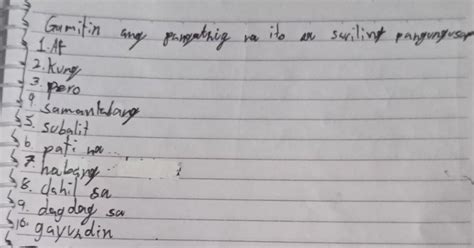 Gamitin ang pangatnig na ito sa sariling pangungusap
1. At
2. Kung
3. pero
4. samantalang
5. subalit
6. pati na
7. habang
8. dahil sa
9. dagdag sa
10. gayundin